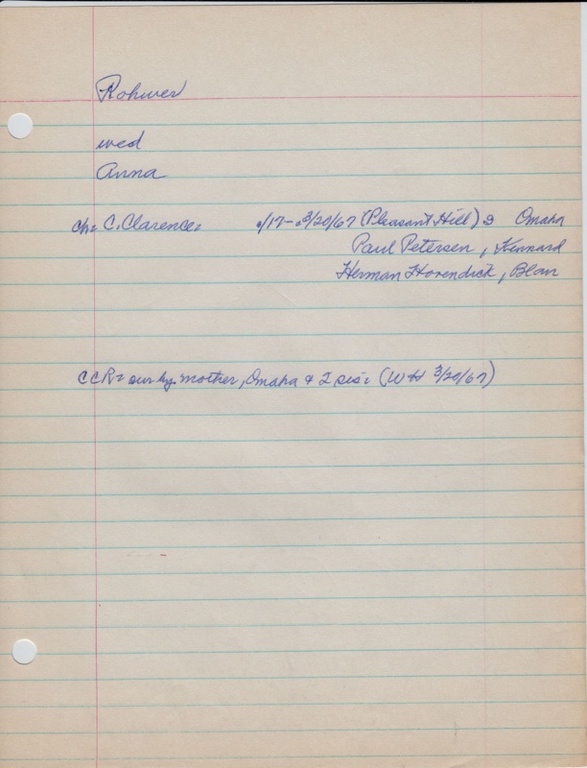 Rohwer
wed
Anna
ch: C. Clarence: /17- 3/20/67 (Pleasant Hill) Omaha
Paul Petersen, Kennard
Herman Hovendick, Blair
CCR: sur by mother, Omaha & 2 sis: (W H 3/20/67)